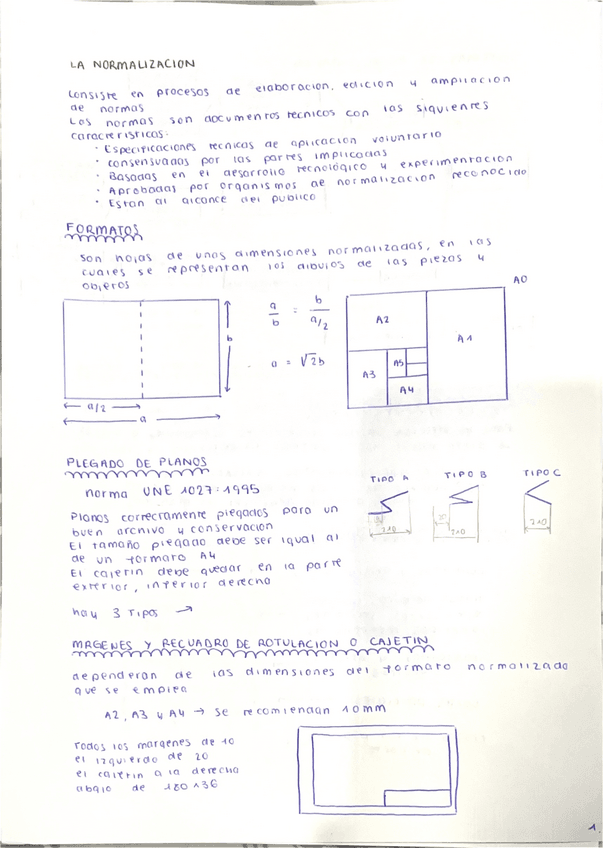 LA NORMALIZACION
Consiste en procesos de elaboracion, edicion y ampliacion
de normas
Las normas son documentos tecnicos con las siguientes
caracteristicas:
· Especificaciones tecnicas de aplicacion voluntario
· consensuadas por las partes implicadas
· Basadas en el desarrollo tecnológico y experimentacion
· Aprobadas por organismos de normalizacion reconocido
· Estan al alcance del publico
FORMATOS
Son hojas de unas dimensiones normalizadas, en las
cuales se representan los dibujos de las piezas y
objetos
a/b = b/a/2
a = √2b
b
a/2
a
A0
A1
A2
A3
A5
A4
PLEGADO DE PLANOS
norma UNE 1027:1995
Planos correctamente plegados para un
buen archivo y conservacion
El tamaño plegado debe ser igual al
de un formato A4
El cajetin debe quedar en la parte
exterior, inferior derecha
hay 3 tipos →
TIPO A
TIPO B
TIPO C
210
210
210
MRGENES Y RECUADRO DE ROTULACION O CAJETIN
dependeran de las dimensiones del formato normalizado
que se emplea
A2, A3 y A4 → se recomiendan 10mm
Todos los margenes de 10
el izquierdo de 20
el cajetin a la derecha
abajo de 180^36
1